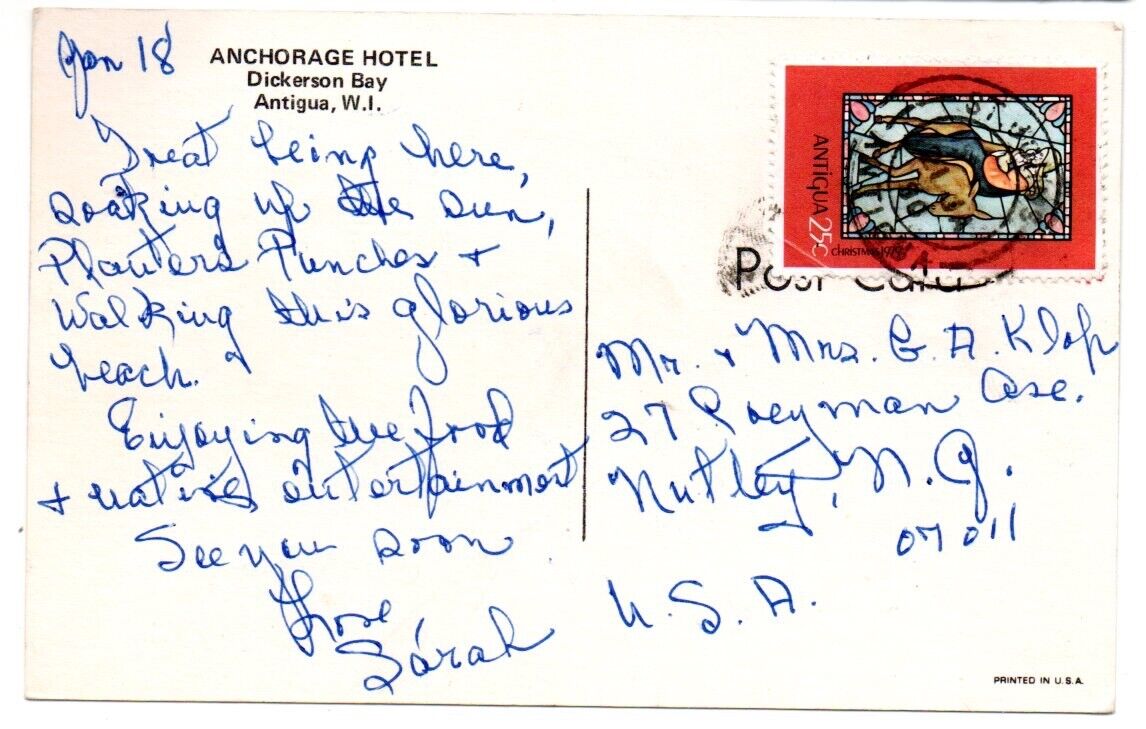 Jan 18
ANCHORAGE HOTEL
Dickerson Bay
Antigua, W.I.
Great being here,
soaking up the sun,
Planters Punches +
walking this glorious
beach.
Enjoying the food
+ native entertainment
See you soon
Sarah
ANTIGUA 25c
CHRISTMAS 1979
Post Card
Mr. + Mrs. G. A. Klop
27 Ave.
Nutley, N. J.
07011
U. S. A.
PRINTED IN U.S.A.